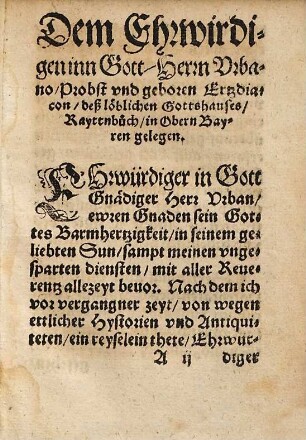 Dem Ehrwirdi-
gen inn Gott Herrn Vrba-
no/Probst vnd geboren Ertzdia-
con/deß löblichen Gottshauses/
Rayttenbůch/in Obern Bay-
ren gelegen.
EHrwürdiger in Gott
Gnädiger Herr Vrban/
ewren Gnaden sein Got-
tes Barmhertzigkeit/in seinem ge-
liebten Sun/sampt meinen vnge-
sparten diensten/mit aller Reue-
rentz allezeyt beuor. Nach dem ich
vor vergangner zeyt/von wegen
ettlicher Hystorien vnd Antiqui-
teten/ein reyselein thete/Ehrwür-
A ij diger